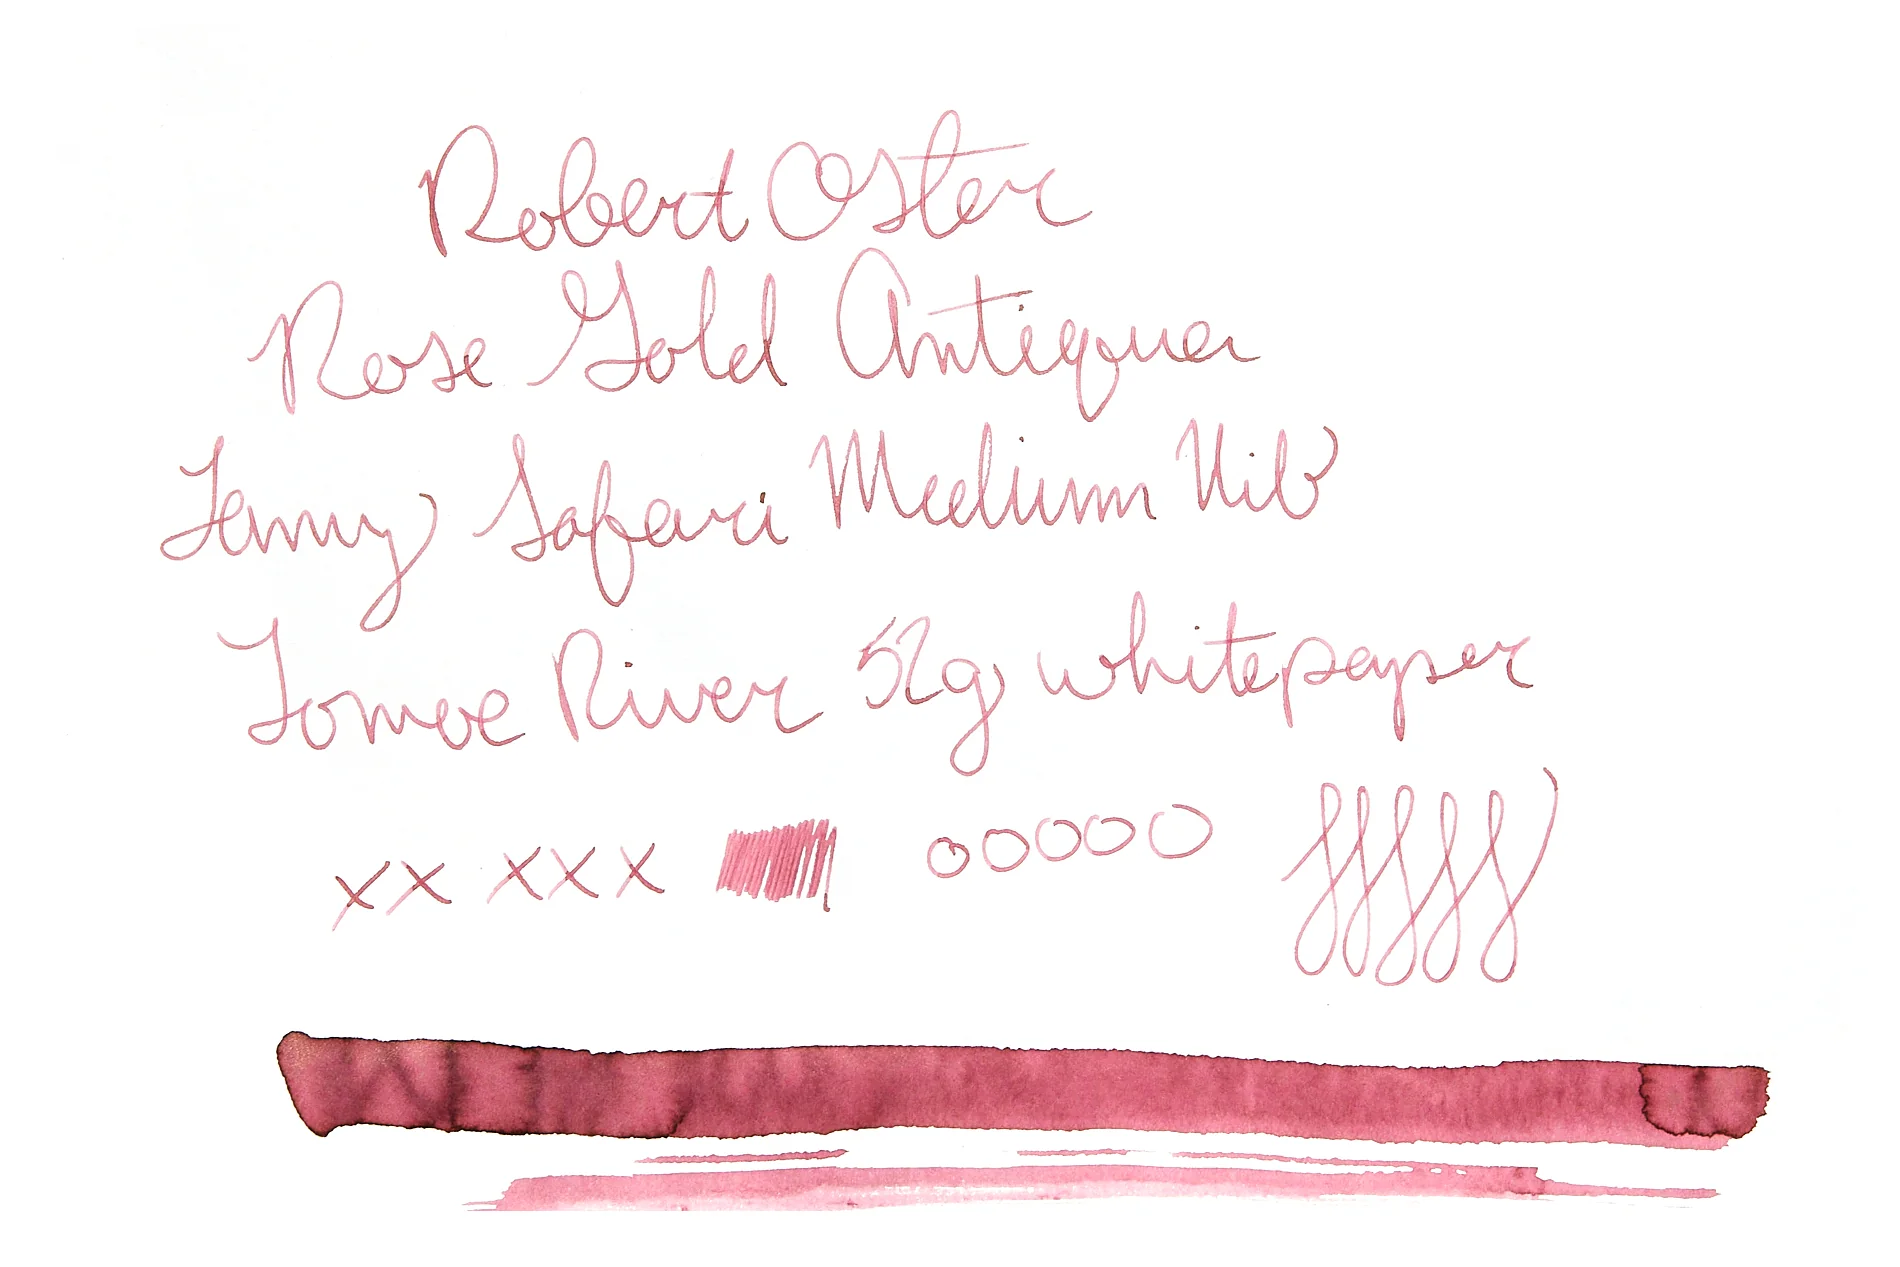 Robert Oster
Rose Gold Antiqua
Lamy Safari Medium Nib
Tomoe River 52g white paper
xx xxx ooooo